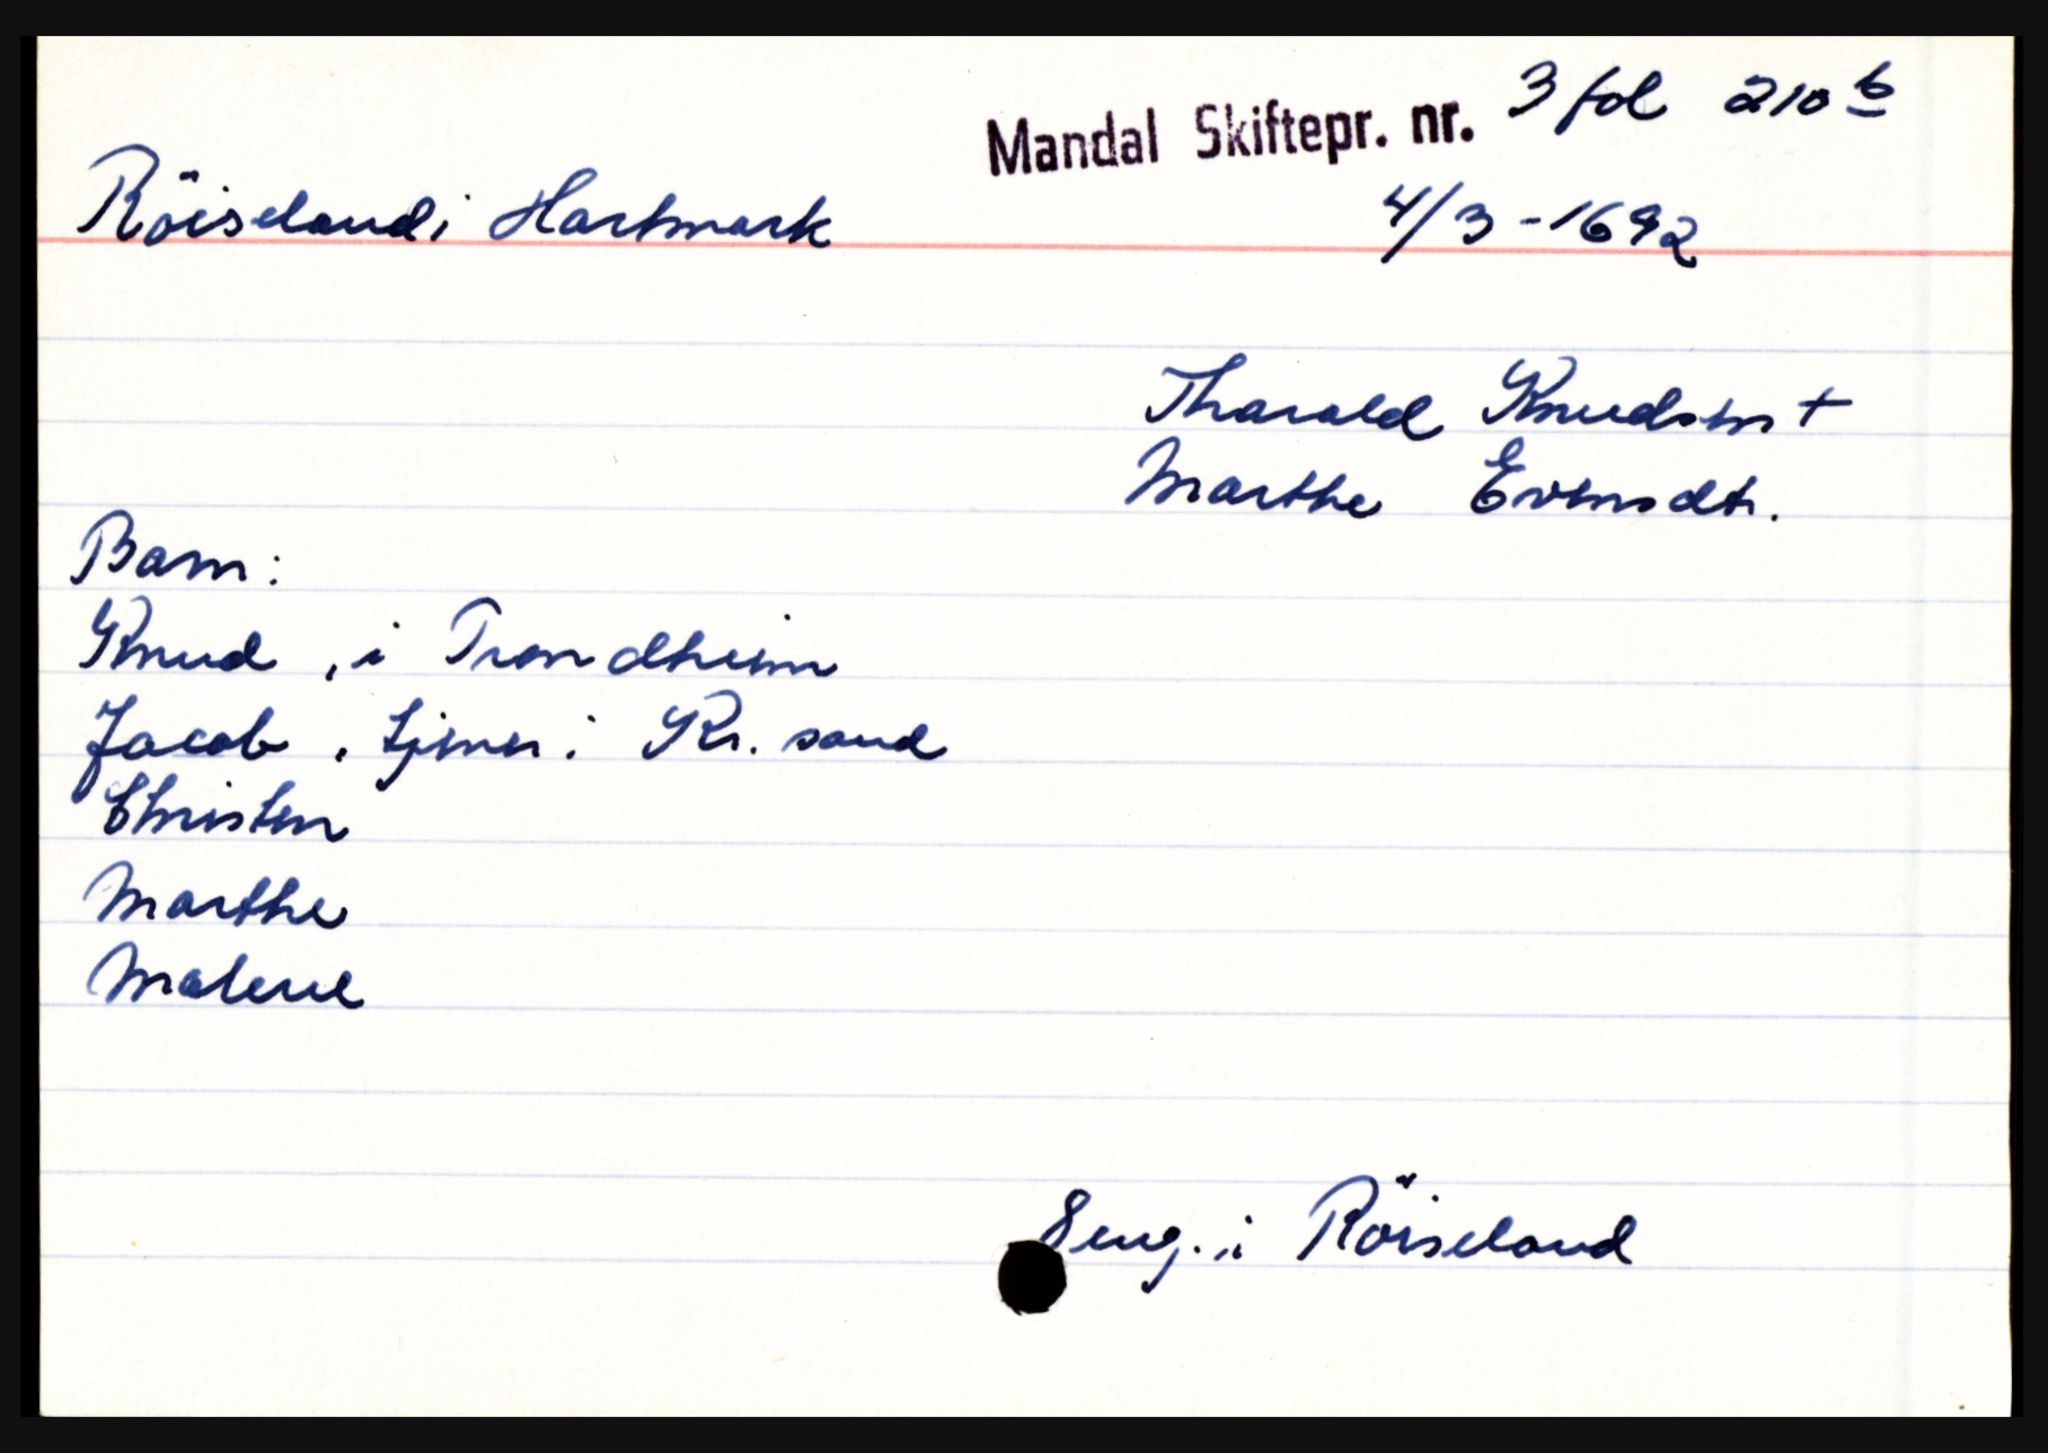 Mandal Skiftepr. nr. 3 fol 210 b
Röiseland i Hartmark 4/3-1692
Tharald Knudsen +
Marthe Evensdtr.
Barn:
Knud, i Trondheim
Jacob, tjener i Kr. sand
Christen
Marthe
Malene
8 eng. i Röiseland